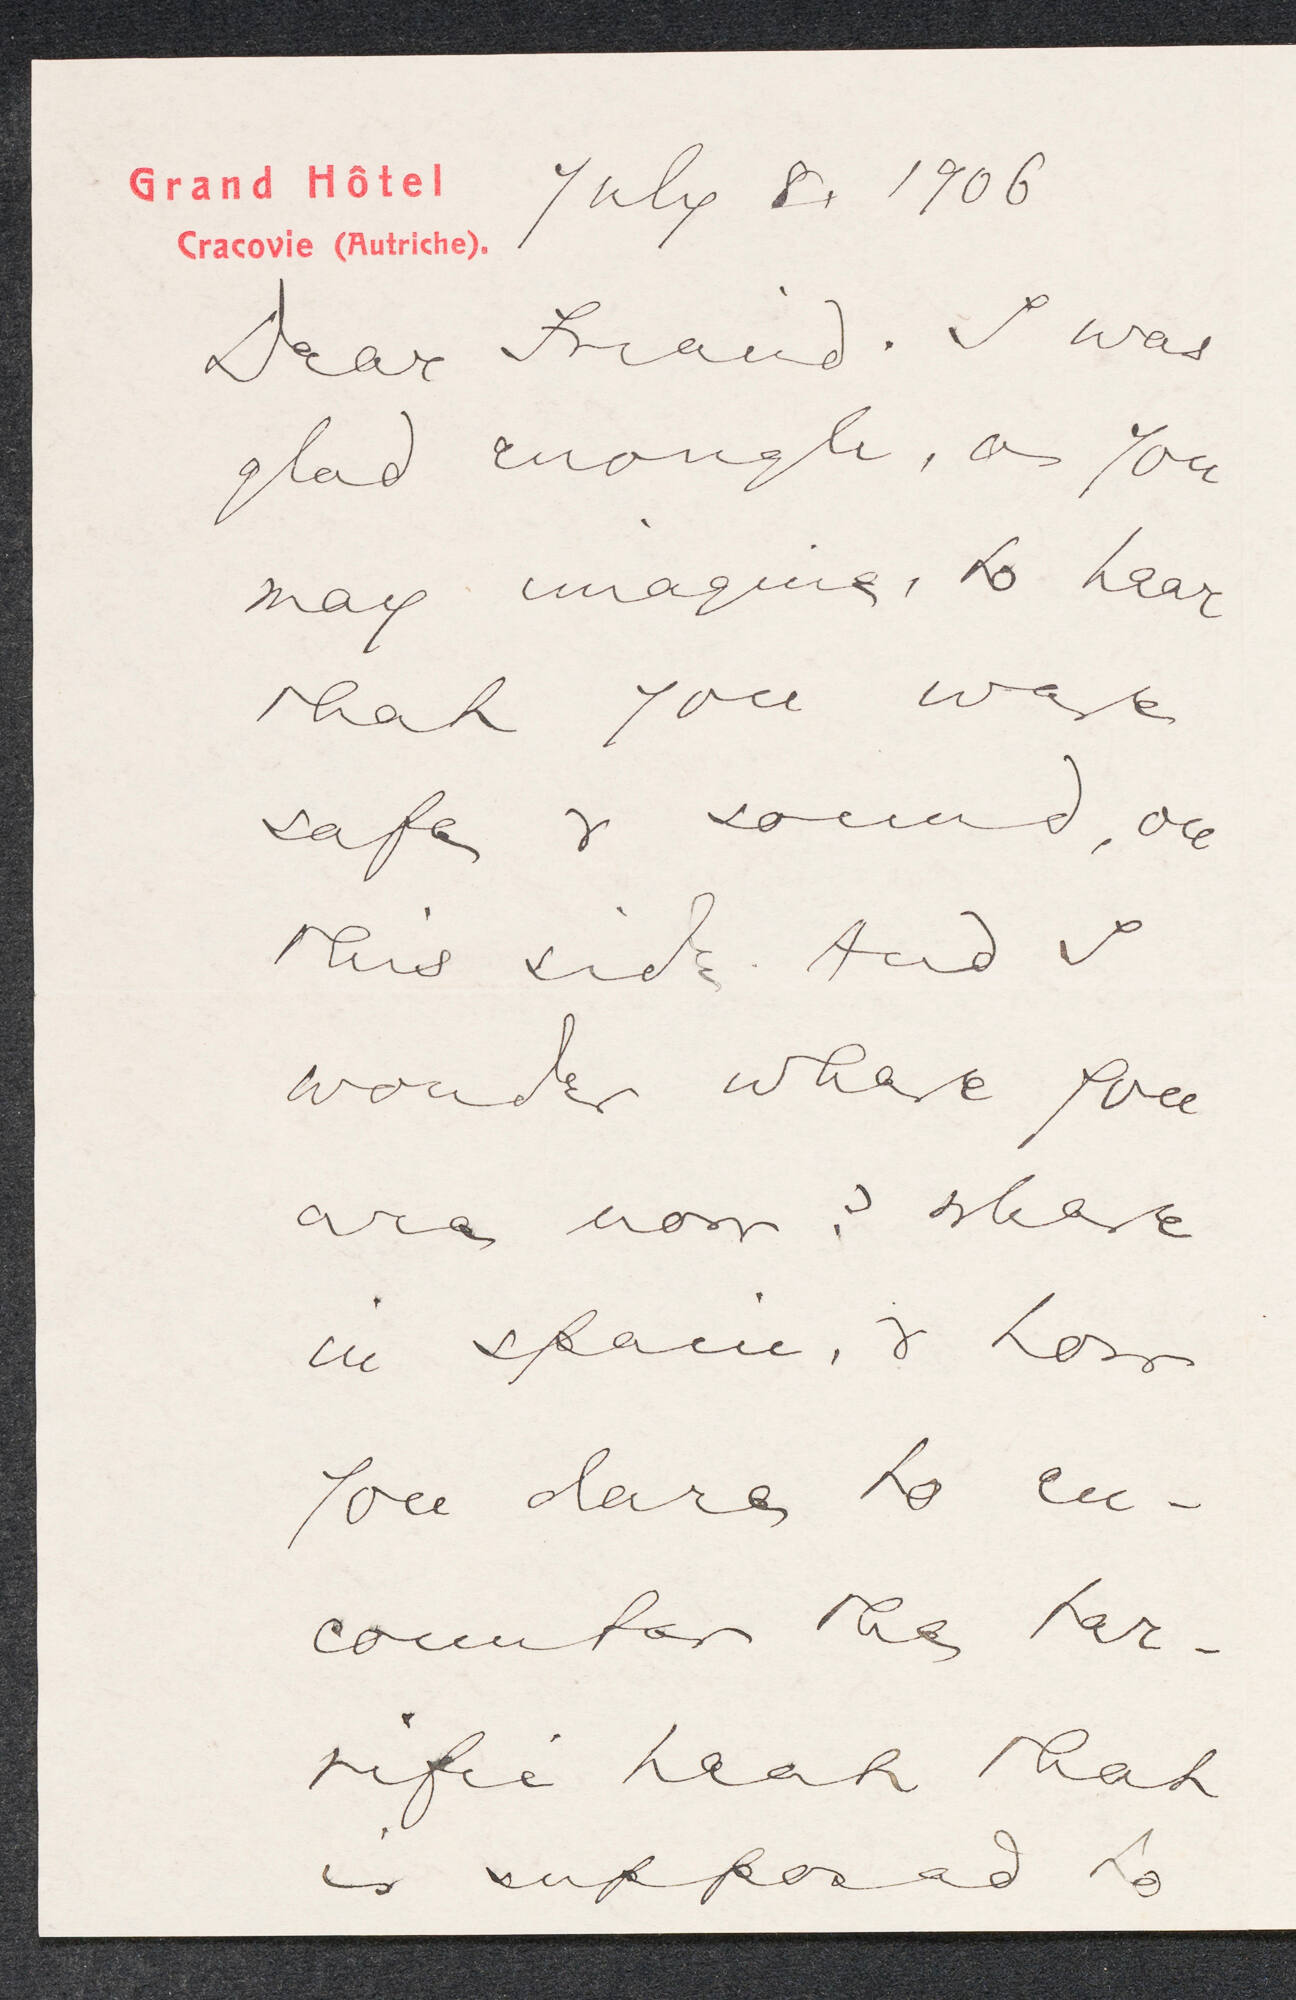 Grand Hôtel
Cracovie (Autriche).
July 8, 1906
Dear Friend. I was
glad enough, as you
may imagine, to hear
that you were
safe & sound, on
this side. And I
wonder where you
are now? where
in Spain, & how
you dare to en-
counter the ter-
rific heat that
is supposed to